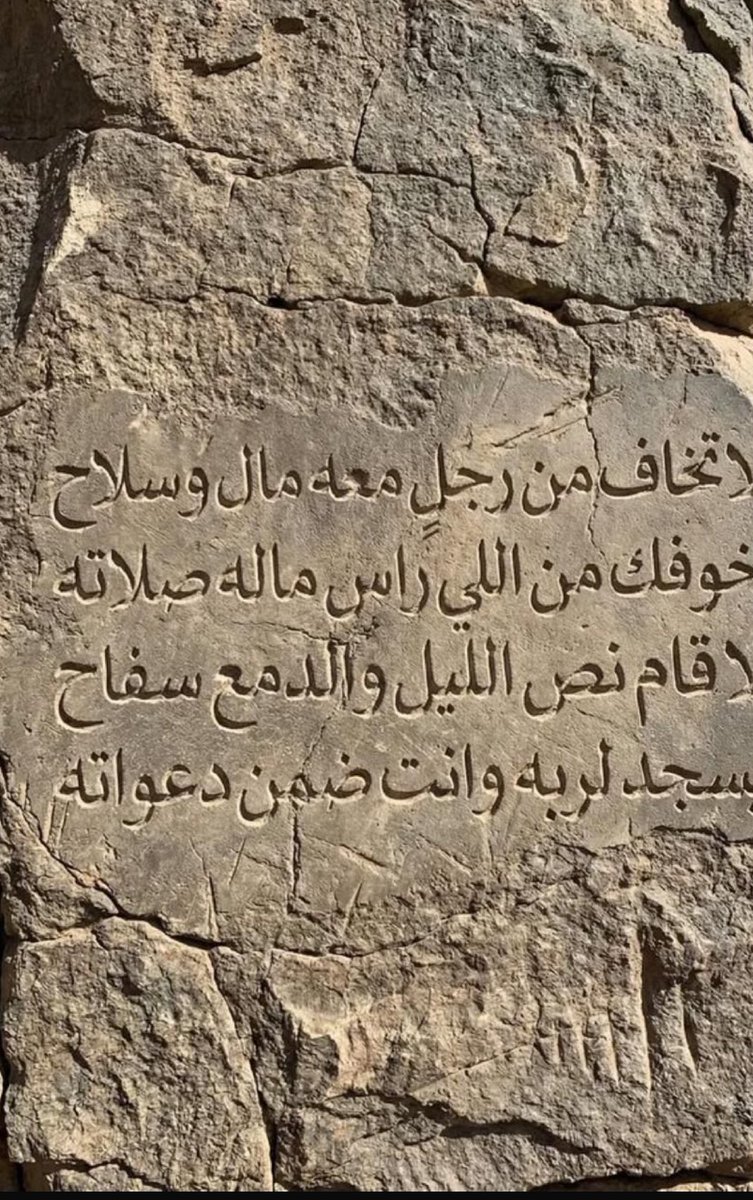 لا تخاف من رجلٍ معه مال وسلاح
خوفك من اللي راس ماله صلاته
لا قام نص الليل والدمع سفاح
سجد لربه وانت ضمن دعواته